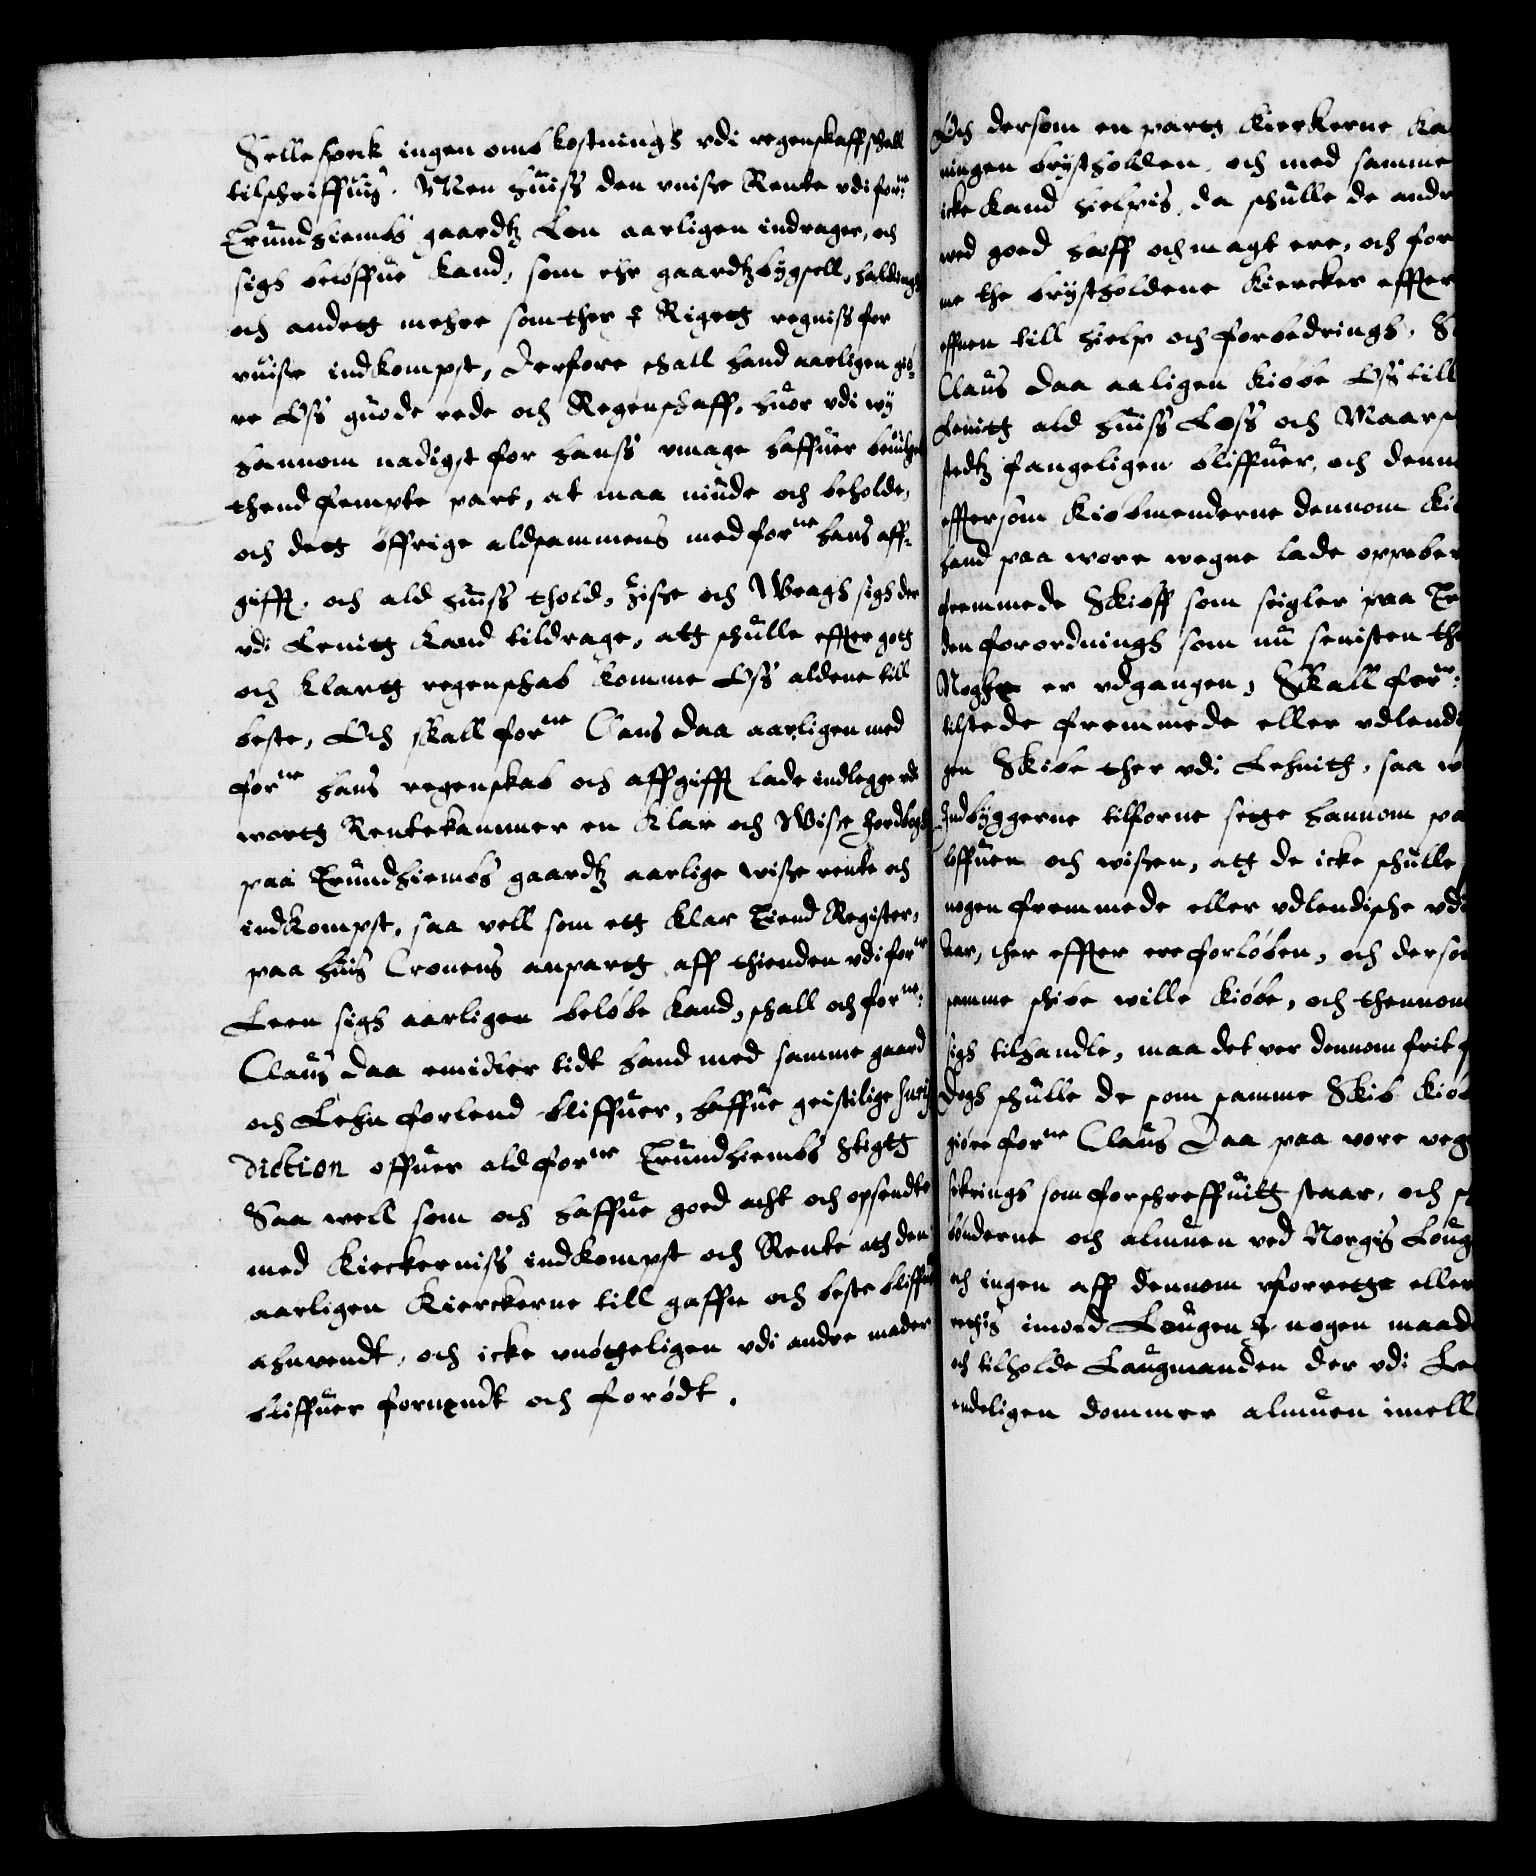 Selle speck ingen omb kostnings vdi regenskaff schall
tilschriffuis. Men huiss den uuisse Rente vdi forne:
Trundhiembs gaardtz Len aarligen indrager, och
sigh beløffue kand, som ehr gaardtzbygsell, holdings
och andetg mehre som ther i Rigetg regniss for
vuisse indkompst, Derfore schall hand aarligen giø-
re Oss guode rede och Regenschaff, huor vdi wy
hannom nadigst for hanss vmage haffuer beuilget
thend fempte part, at maa niude och beholde,
och detg øffrige aldsammens med forne hans aff-
gifft, och ald huiss thold, zisse och Wragh sigh der
vdi Lenitg kand tildrage, atg schulle effter gotg
och klartg regenschab komme Oss aldene till
beste, Och skall forne Claus daa aarligen med
forne hans regenskab och affgifft lade indlegge vdi
wortg Rentekammer en klar och Wisse Jordbogh
paa Trundhiembs gaardtz aarlige wisse rente och
indkompst, saa vell som etg klar Tiend Register,
paa huis Cronens anpartg aff thienden vdi forne
Leen sigh aarligen beløbe kand, schall och forne:
Claus daa emidler tidt hand med samme gaard
och Lehn forlend bliffuer, haffue geistilige Juris
diction offuer ald forne Trundhiembs Stigtg
Saa well som och haffue goed acht och opsendte
med Kierckerniss indkompst och Rente ath den
aarligen Kierckerne till gaffn och beste bliffuer
ahnvendt, och icke unøtgeligen vdi andre mader
bliffuer foruendt och forødt.
Och dersom en partg Kierkerne ka
ningen brystholden, och med samme
icke kand hielpis, da schulle de andr
wed goed hæff och magt ere, och for
me the brystholdene Kiercker effter
effuen till hielp och forbedrings, S
Claus daa aaligen kiøbe Oss till
Lenitg ald huiss Loss och Maars
stedtz fangeligen bliffuer, och denn
effter som Kiøbmenderne dennom ki
hand paa wore wegne lade oppeber
fremmede Skiøff som seigler paa Tr
den forordnings som nu senisten the
Noghe er vdgangen, Skall forne:
tilstede fremmede eller vdlendi
gen Skibe ther vdi Lehnith, saa w
Indbyggerne tilforne setge hannom pa
loffuen och wissen, atg de icke schulle
nogen fremmede eller vdlendische vdi
aar, ther effter ere forløben, och derso
samme schibe wille kiøbe, och thennom
sigh tilhandle, maa det ver dennom frit f
Dogh schulle de som samme Skib kiøb
giøre forne Claus Daa paa vore veg
sikrings som forschreffuitg staar, och s
bønderne och almuen ved Norgis Loug
och ingen aff dennom forretge eller
rethis imoed Lougen i nogen maad
och tilholde Laugmanden der vdi Le
endeligen dommer almuen imell